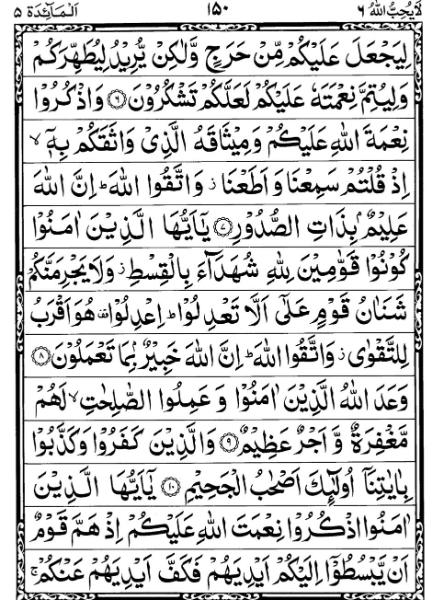 لَا يُحِبُّ اللهُ ٦ ١٥٠ اَلْمَآئِدَة ٥
لِيَجْعَلَ عَلَيْكُمْ مِّنْ حَرَجٍ وَّلٰكِنْ يُّرِيْدُ لِيُطَهِّرَكُمْ
وَلِيُتِمَّ نِعْمَتَهٗ عَلَيْكُمْ لَعَلَّكُمْ تَشْكُرُوْنَ ۝٦ وَاذْكُرُوْا
نِعْمَةَ اللهِ عَلَيْكُمْ وَمِيْثَاقَهُ الَّذِيْ وَاثَقَكُمْ بِهٖٓ ۙ
اِذْ قُلْتُمْ سَمِعْنَا وَاَطَعْنَا ۫ وَاتَّقُوا اللهَ ؕ اِنَّ اللهَ
عَلِيْمٌۢ بِذَاتِ الصُّدُوْرِ ۝٧ يٰٓاَيُّهَا الَّذِيْنَ اٰمَنُوْا
كُوْنُوْا قَوّٰمِيْنَ لِلّٰهِ شُهَدَآءَ بِالْقِسْطِ ۫ وَلَا يَجْرِمَنَّكُمْ
شَنَاٰنُ قَوْمٍ عَلٰٓى اَلَّا تَعْدِلُوْا ؕ اِعْدِلُوْا ۟ هُوَ اَقْرَبُ
لِلتَّقْوٰى ۫ وَاتَّقُوا اللهَ ؕ اِنَّ اللهَ خَبِيْرٌۢ بِمَا تَعْمَلُوْنَ ۝٨
وَعَدَ اللهُ الَّذِيْنَ اٰمَنُوْا وَعَمِلُوا الصّٰلِحٰتِ ۙ لَهُمْ
مَّغْفِرَةٌ وَّاَجْرٌ عَظِيْمٌ ۝٩ وَالَّذِيْنَ كَفَرُوْا وَكَذَّبُوْا
بِاٰيٰتِنَآ اُولٰٓئِكَ اَصْحٰبُ الْجَحِيْمِ ۝١٠ يٰٓاَيُّهَا الَّذِيْنَ
اٰمَنُوا اذْكُرُوْا نِعْمَتَ اللهِ عَلَيْكُمْ اِذْ هَمَّ قَوْمٌ
اَنْ يَّبْسُطُوْٓا اِلَيْكُمْ اَيْدِيَهُمْ فَكَفَّ اَيْدِيَهُمْ عَنْكُمْ ۚ